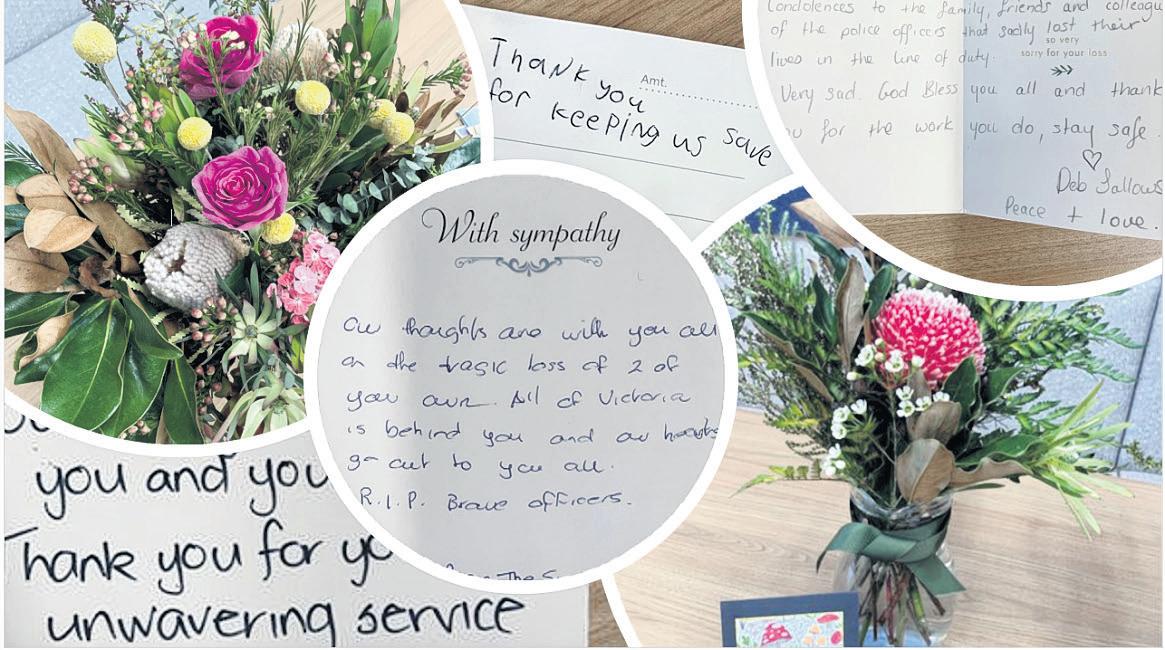 Thank you
Amt.
for keeping us save
Condolences to the family, friends and
of the police officers that sadly lost their
so very
sorry for your loss
lives in the line of duty.
Very sad. God Bless you all and thank
for the work you do, stay safe.
Deb Sallows
Peace + love.
With sympathy
Our thoughts are with you all
on the tragic loss of 2 of
your own. All of Victoria
is behind you and our hearts
go out to you all.
R.I.P. Brave officers.
you and you
Thank you for yo
unwavering service